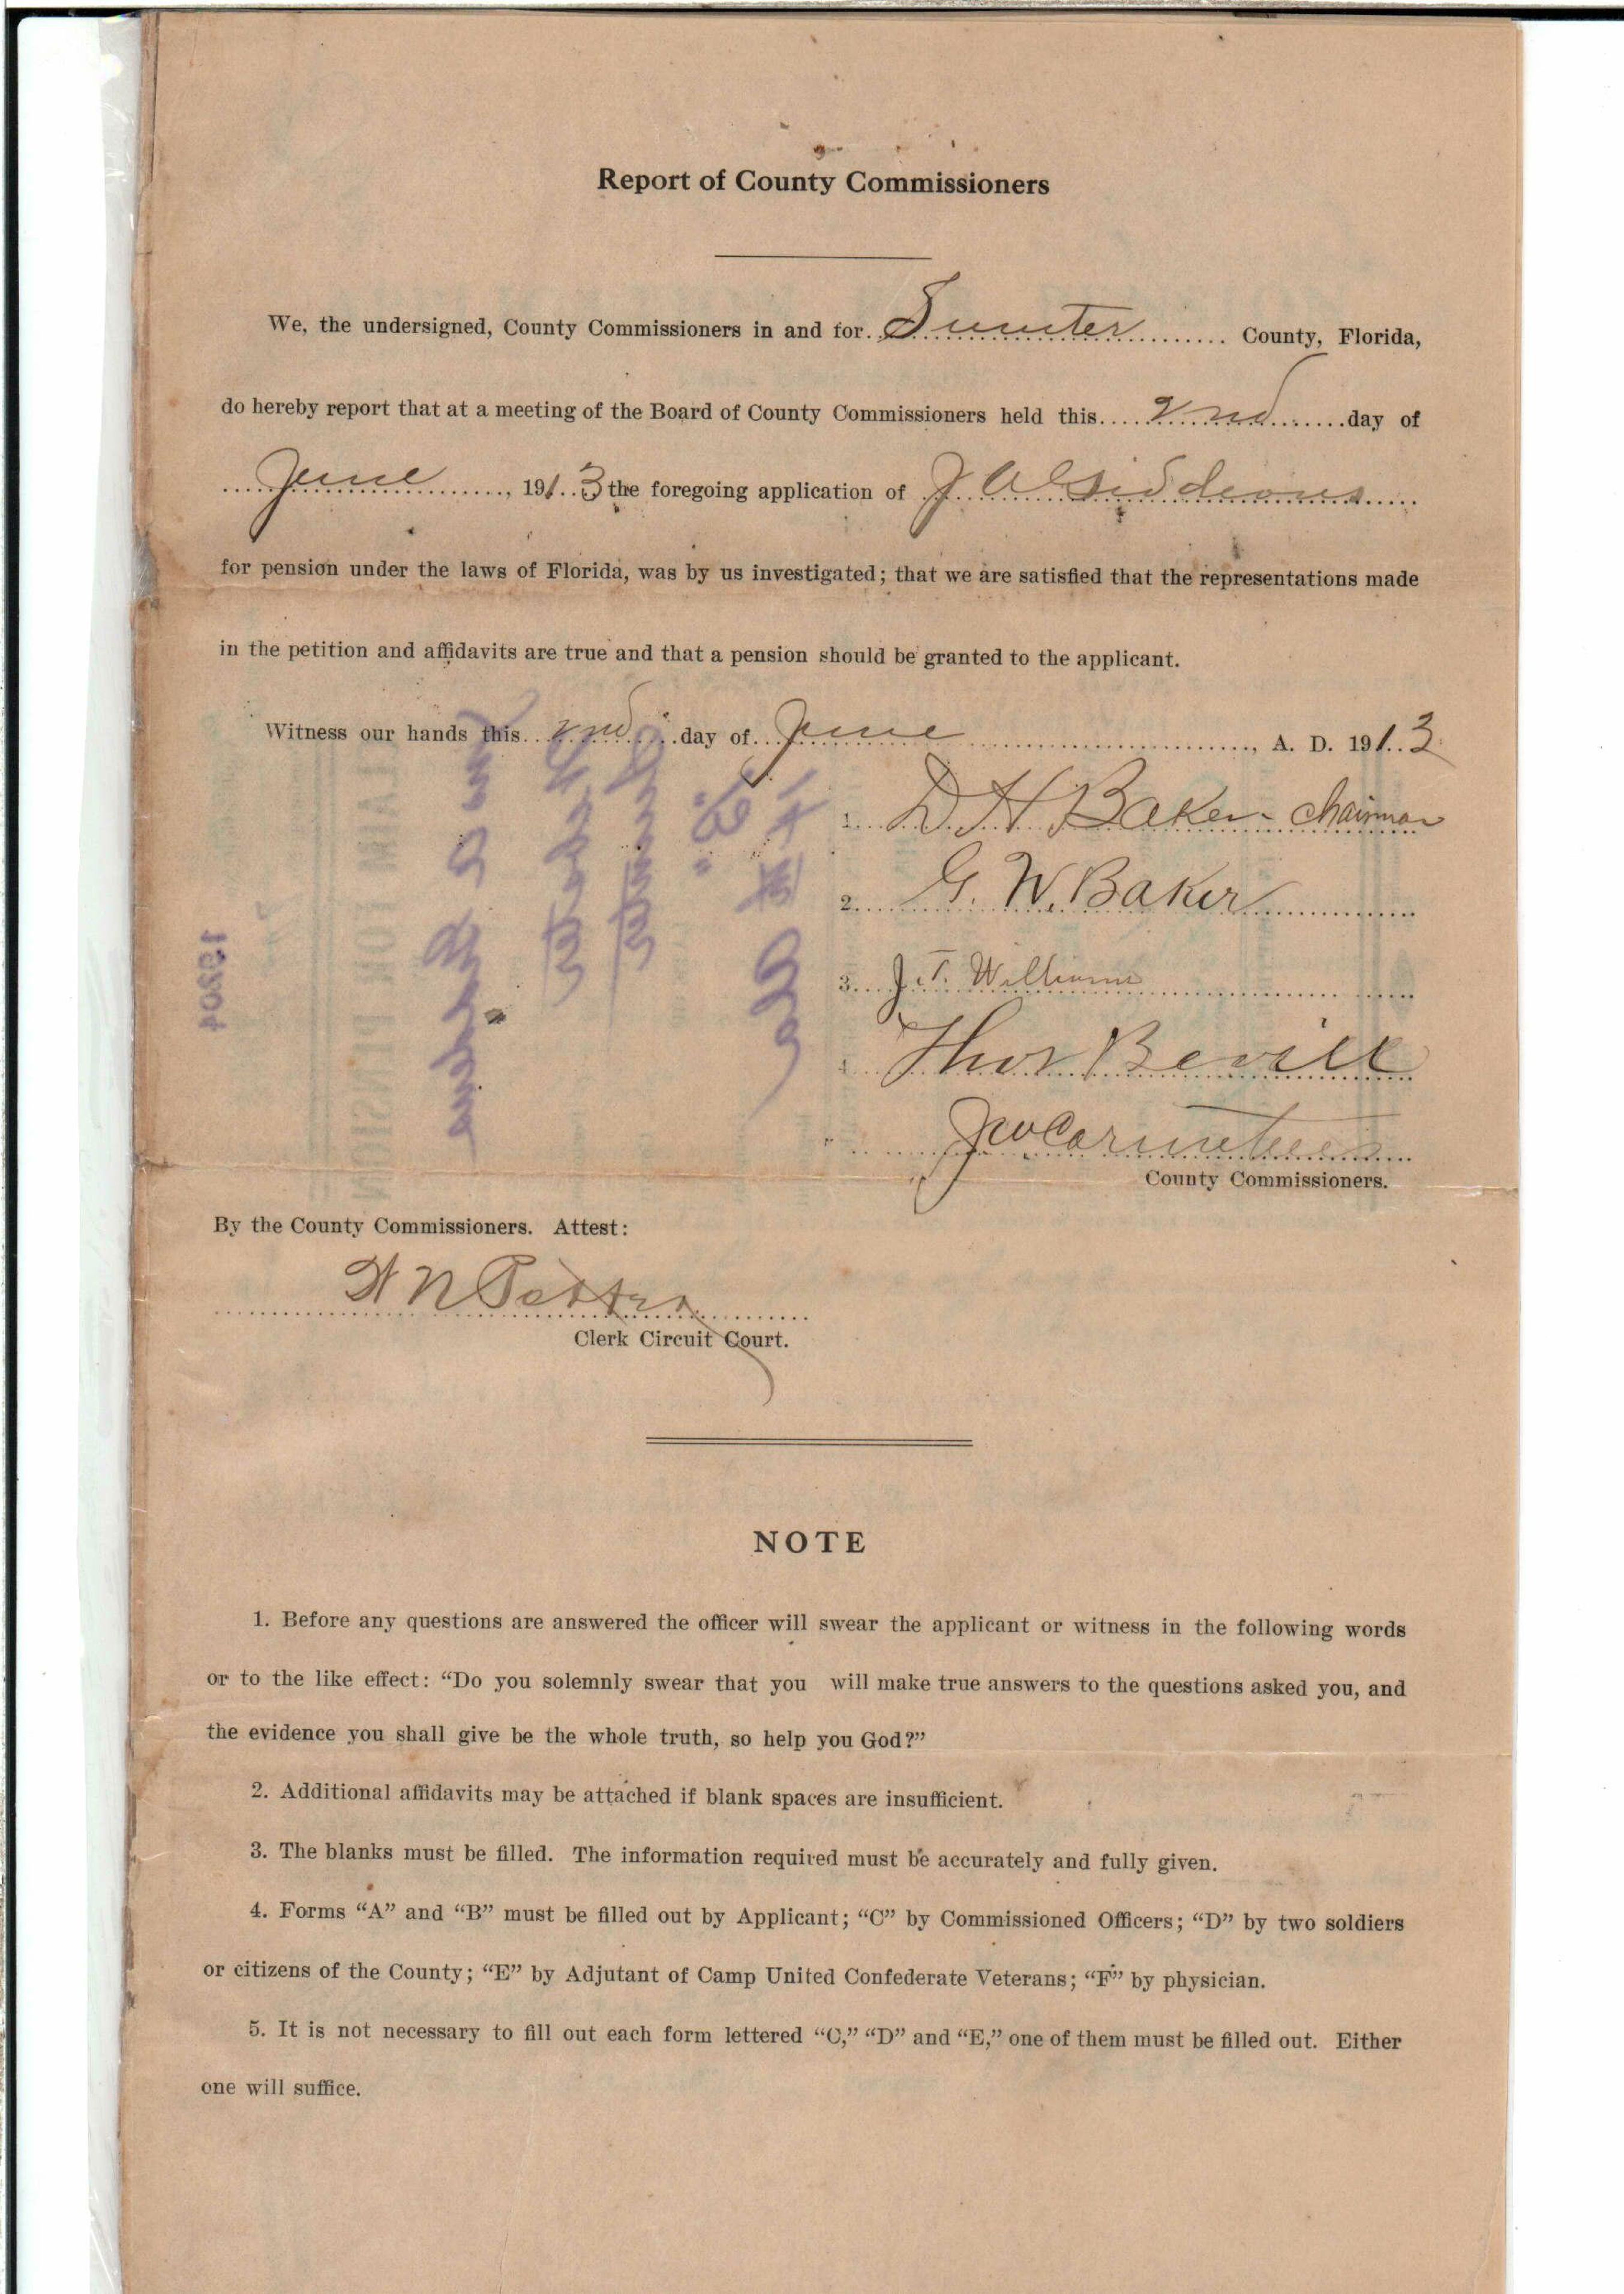 Report of County Commissioners
We, the undersigned, County Commissioners in and for Sumter County, Florida,
do hereby report that at a meeting of the Board of County Commissioners held this 2nd day of
June, 1913 the foregoing application of J A
for pension under the laws of Florida, was by us investigated; that we are satisfied that the representations made
in the petition and affidavits are true and that a pension should be granted to the applicant.
Witness our hands this 2nd day of June, A. D. 1913
1. D. H Baker - Chairman
2. G. W. Baker
3. J. T. Williams
Thos Bevill
County Commissioners.
By the County Commissioners. Attest:
W N Potter
Clerk Circuit Court.
NOTE
1. Before any questions are answered the officer will swear the applicant or witness in the following words
or to the like effect: “Do you solemnly swear that you will make true answers to the questions asked you, and
the evidence you shall give be the whole truth, so help you God?”
2. Additional affidavits may be attached if blank spaces are insufficient.
3. The blanks must be filled. The information required must be accurately and fully given.
4. Forms “A” and “B” must be filled out by Applicant; “C” by Commissioned Officers; “D” by two soldiers
or citizens of the County; “E” by Adjutant of Camp United Confederate Veterans; “F” by physician.
5. It is not necessary to fill out each form lettered “C,” “D” and “E,” one of them must be filled out. Either
one will suffice.